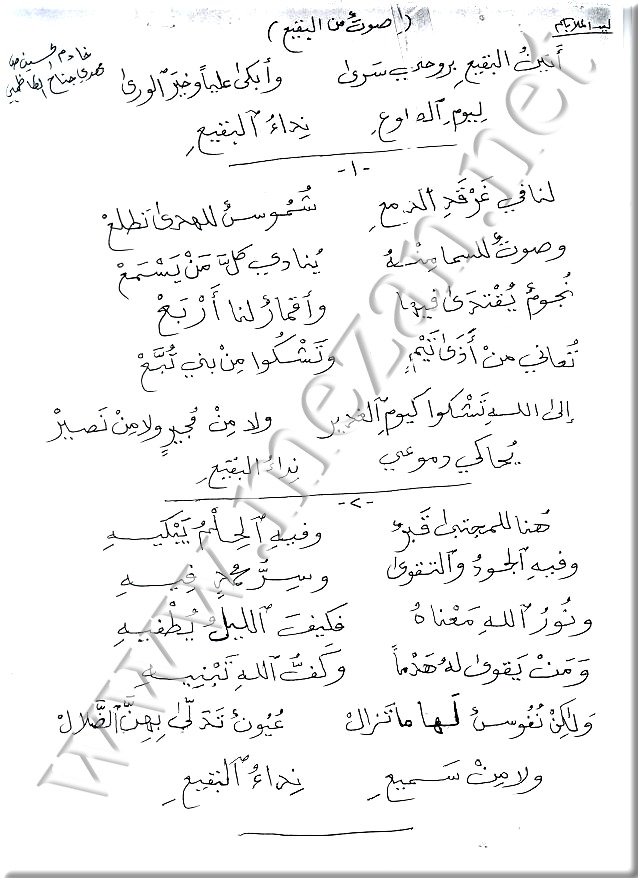 ليـد الملا باسم
(صوتٌ من البقيع)
خادم الحسين
مهدي جناح الكاظمي
أنينُ البقيعِ بروحي سَرىٰ وأبكىٰ علياً وخيرَ الورىٰ
ليومِ نداءُ البقيعِ
-١-
لنا في غَرْقَدِ الدمعِ شُمُوسٌ للهدىٰ تطلعْ
وصوتٌ للسما منهُ يُنادي كلَّ مَنْ يَسْمَعْ
نُجومٌ يُقْتدىٰ فيها وأقمارٌ لنا أَرْبَعْ
تُعاني منْ أَذىٰ تَيْمٍ وتَشْكُوا مِنْ بني تُبَّعْ
إلىٰ اللهِ تَشْكوا كيومِ الغديرِ ولا مِنْ مُجيرٍ ولا مِنْ نَصيرْ
يُحاكي دموعي نداءُ البقيعِ
-٢-
هُنا للمجتبىٰ قَبرٌ وفيهِ الحِلْمُ يَبْكيهِ
وفيهِ الجودُ والتقوىٰ وسِرُّ محمدٍ فيهِ
ونُورُ اللهِ مَعْناهُ فكيفَ الليلُ يُطْفيهِ
وَمَنْ يَقوىٰ لهُ هَدْماً وكَفُّ اللهِ تَبْنيهِ
ولٰكِنْ نُفُوسٌ لها ما تزالْ عُيُونٌ تَدَلّىٰ بِهِنَّ الضَّلالْ
ولا مِنْ سَميعِ نِداءُ البقيعِ
www.mezan.net